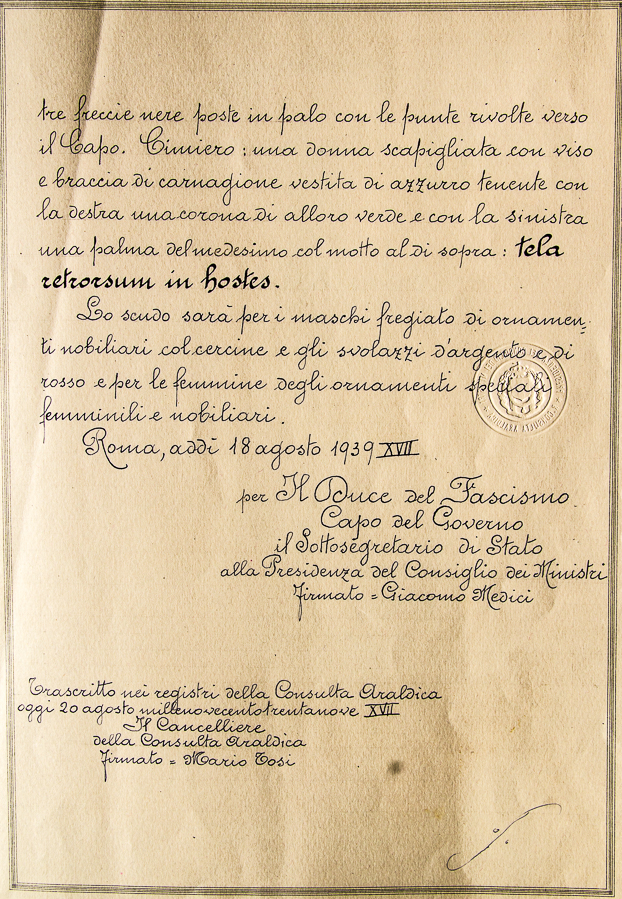 tre freccie nere poste in palo con le punte rivolte verso
il Capo. Cimiero: una donna scapigliata con viso
e braccia di carnagione vestita di azzurro tenente con
la destra una corona di alloro verde e con la sinistra
una palma del medesimo col motto al di sopra: tela
retrorsum in hostes.
Lo scudo sarà per i maschi fregiato di ornamen=
ti nobiliari col cercine e gli svolazzi d'argento e di
rosso e per le femmine degli ornamenti speciali
femminili e nobiliari.
Roma, addì 18 agosto 1939 XVII
per Il Duce del Fascismo
Capo del Governo
il Sottosegretario di Stato
alla Presidenza del Consiglio dei Ministri
Firmato = Giacomo Medici
Trascritto nei registri della Consulta Araldica
oggi 20 agosto millenovecentotrentanove XVII
Il Cancelliere
della Consulta Araldica
Firmato = Mario Tosi